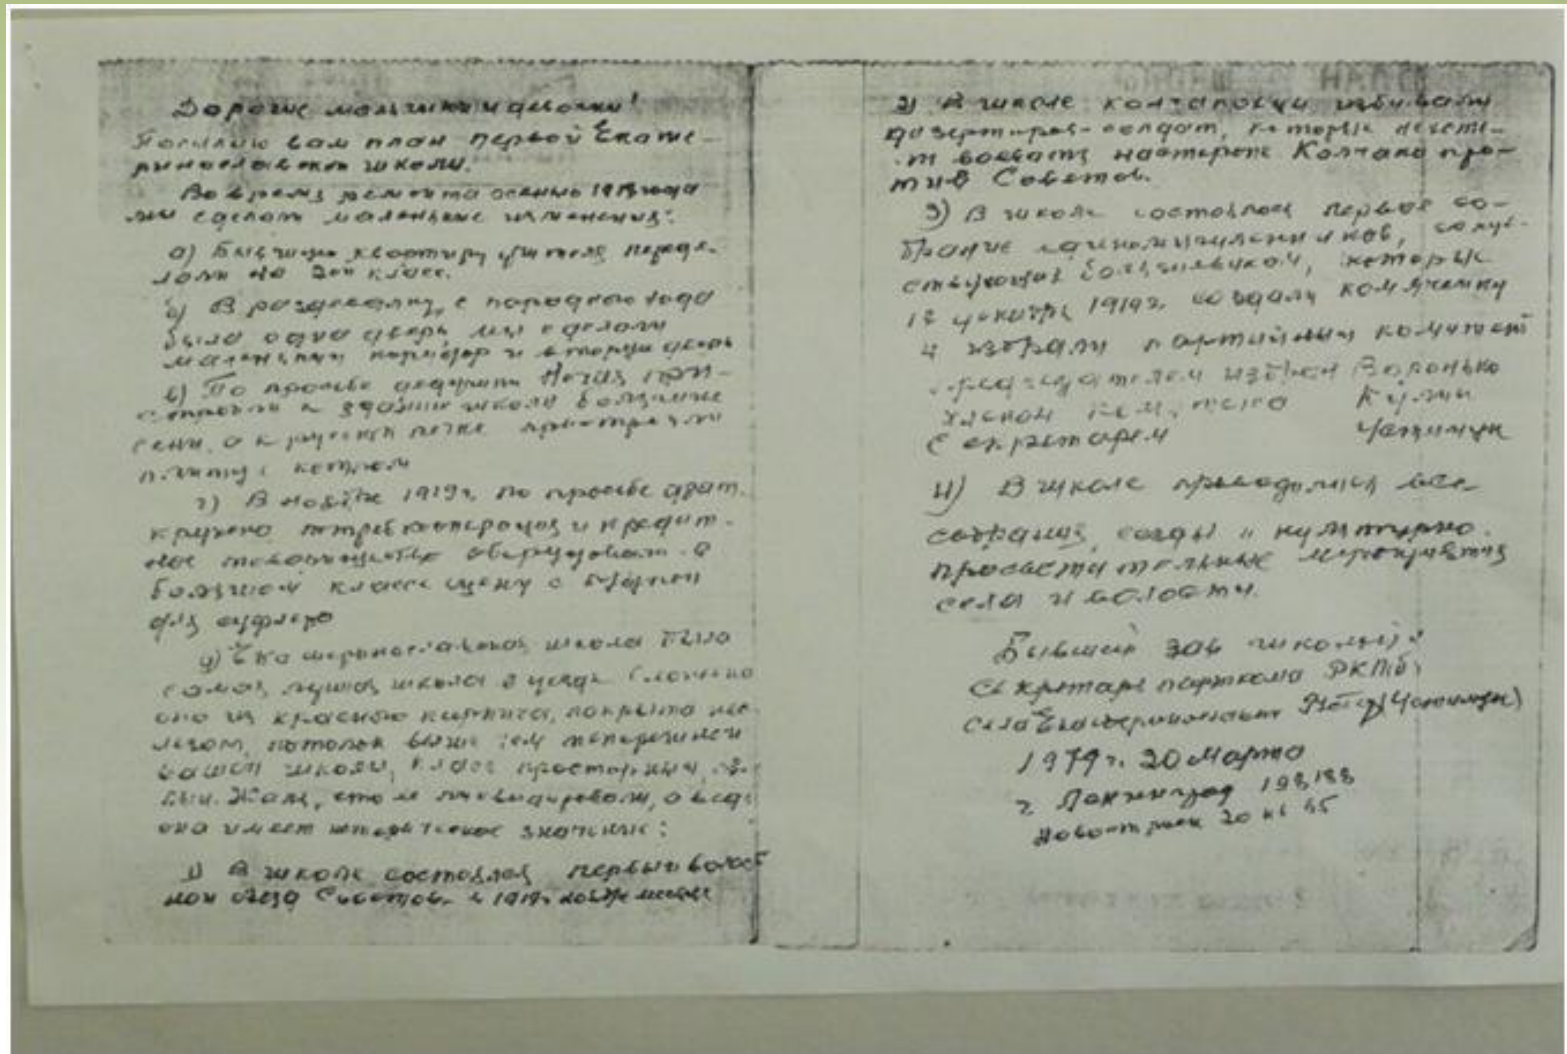 Дорогие мальчики и девочки!
Посылаю вам план первой Екате-
ринославской школы.
Во время ремонта осенью года
мы сделали маленькие изменения:
а) Бывшую квартиру учителя переде-
лали на 2ой класс.
б) В раздевалку, с парадного хода
была одна дверь мы сделали
маленький коридор и вторую дверь
в) По просьбе дедушки при-
строили к зданию школы большие
сени, а к русской печке пристроили
плиту с котлом
г) В ноябре 1919г. по просьбе
потребкооперация и кредит-
ное товарищество оборудовали в
большом классе сцену с будкой
для суфлера
д) Екатеринославская школа была
самая лучшая школа в уезде
она из красного кирпича, покрыта же-
лезом, потолок выше чем теперешней
вашей школы, класс просторный,
Жаль, что ее ликвидировали, а ведь
она имеет историческое значение:
1) В школе состоялся первый волост
ной съезд Советов в 1919г. ноябре месяце
2) В школе колчаковцы избивали
дезертиров-солдат, которые не хоте-
ли воевать на стороне Колчака про-
тив Советов.
3) В школе состоялось первое со-
брание единомышленников, сочув-
ствующих большевикам, которые
12 декабря 1919г. создали комячейку
и избрали партийный комитет
председателем избран Воронько
членом комитета
Секретарем
4) В школе проводились все
собрания, съезды и культурно.
просветительные мероприятия
села и волости.
Бывший зав школы и
секретарь парткома РКП(б)
села
1979 г. 20 Марта
г Ленинград 198188
20 кв 45